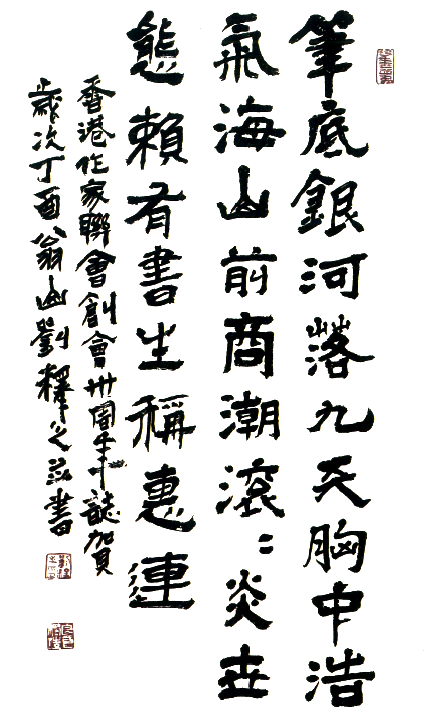 筆底銀河落九天胸中浩
氣海山前商潮滾〻炎世
態賴有書生稱惠連
香港作家聯會創會卅周年誌賀
歲次丁酉翁山劉釋之並書